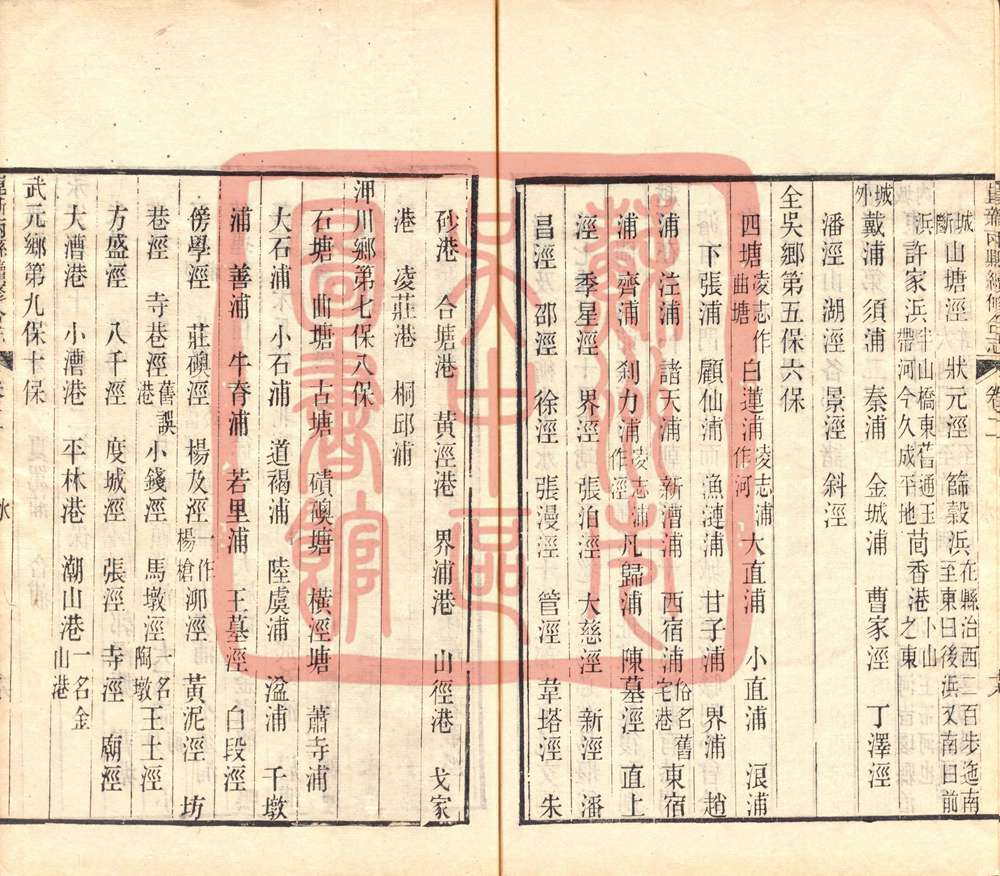 崑新兩縣續修合志 卷二
城斷山塘涇 狀元涇 篩穀浜在縣治西二百步迤南至東曰後浜又南曰前
浜許家浜半山橋東舊通玉帶河今久成平地茼香港小山之東
城外戴浦 須浦 秦浦 金城浦 曹家涇 丁澤涇
潘涇 湖涇 景涇 斜涇
全吳鄉第五保六保
四塘凌志作曲塘白蓮浦凌志浦作河大直浦 小直浦 浪浦
下張浦 顧仙浦 漁漣浦 甘子浦 界浦 趙
浦 注浦 諸天浦 新漕浦 西宿浦俗名舊宅港東宿
浦 齊浦 刹力浦凌志浦作涇凡歸浦 陳墓涇 直上
涇 季星涇 界涇 張泊涇 大慈涇 新涇 潘
昌涇 邵涇 徐涇 張漫涇 管涇 韋塔涇 朱
砂港 合塘港 黃涇港 界浦港 山徑港 戈家
港 凌莊港 桐邱浦
浀川鄉第七保八保
石塘 曲塘 古塘 磧礇塘 橫涇塘 蕭寺浦
大石浦 小石浦 道褐浦 陸虞浦 湓浦 千墩
浦 善浦 牛脊浦 若里浦 王墓涇 白段涇
傍學涇 莊礇涇 楊及涇一作楊槍泖涇 黃泥涇 坊
巷涇 寺巷涇舊誤港小錢涇 馬墩涇一名陶墩王土涇
方盛涇 八千涇 度城涇 張涇 寺涇 廟涇
大漕港 小漕港 平林港 潮山港一名金山港
武元鄉第九保十保
蘇州市文中區圖書館